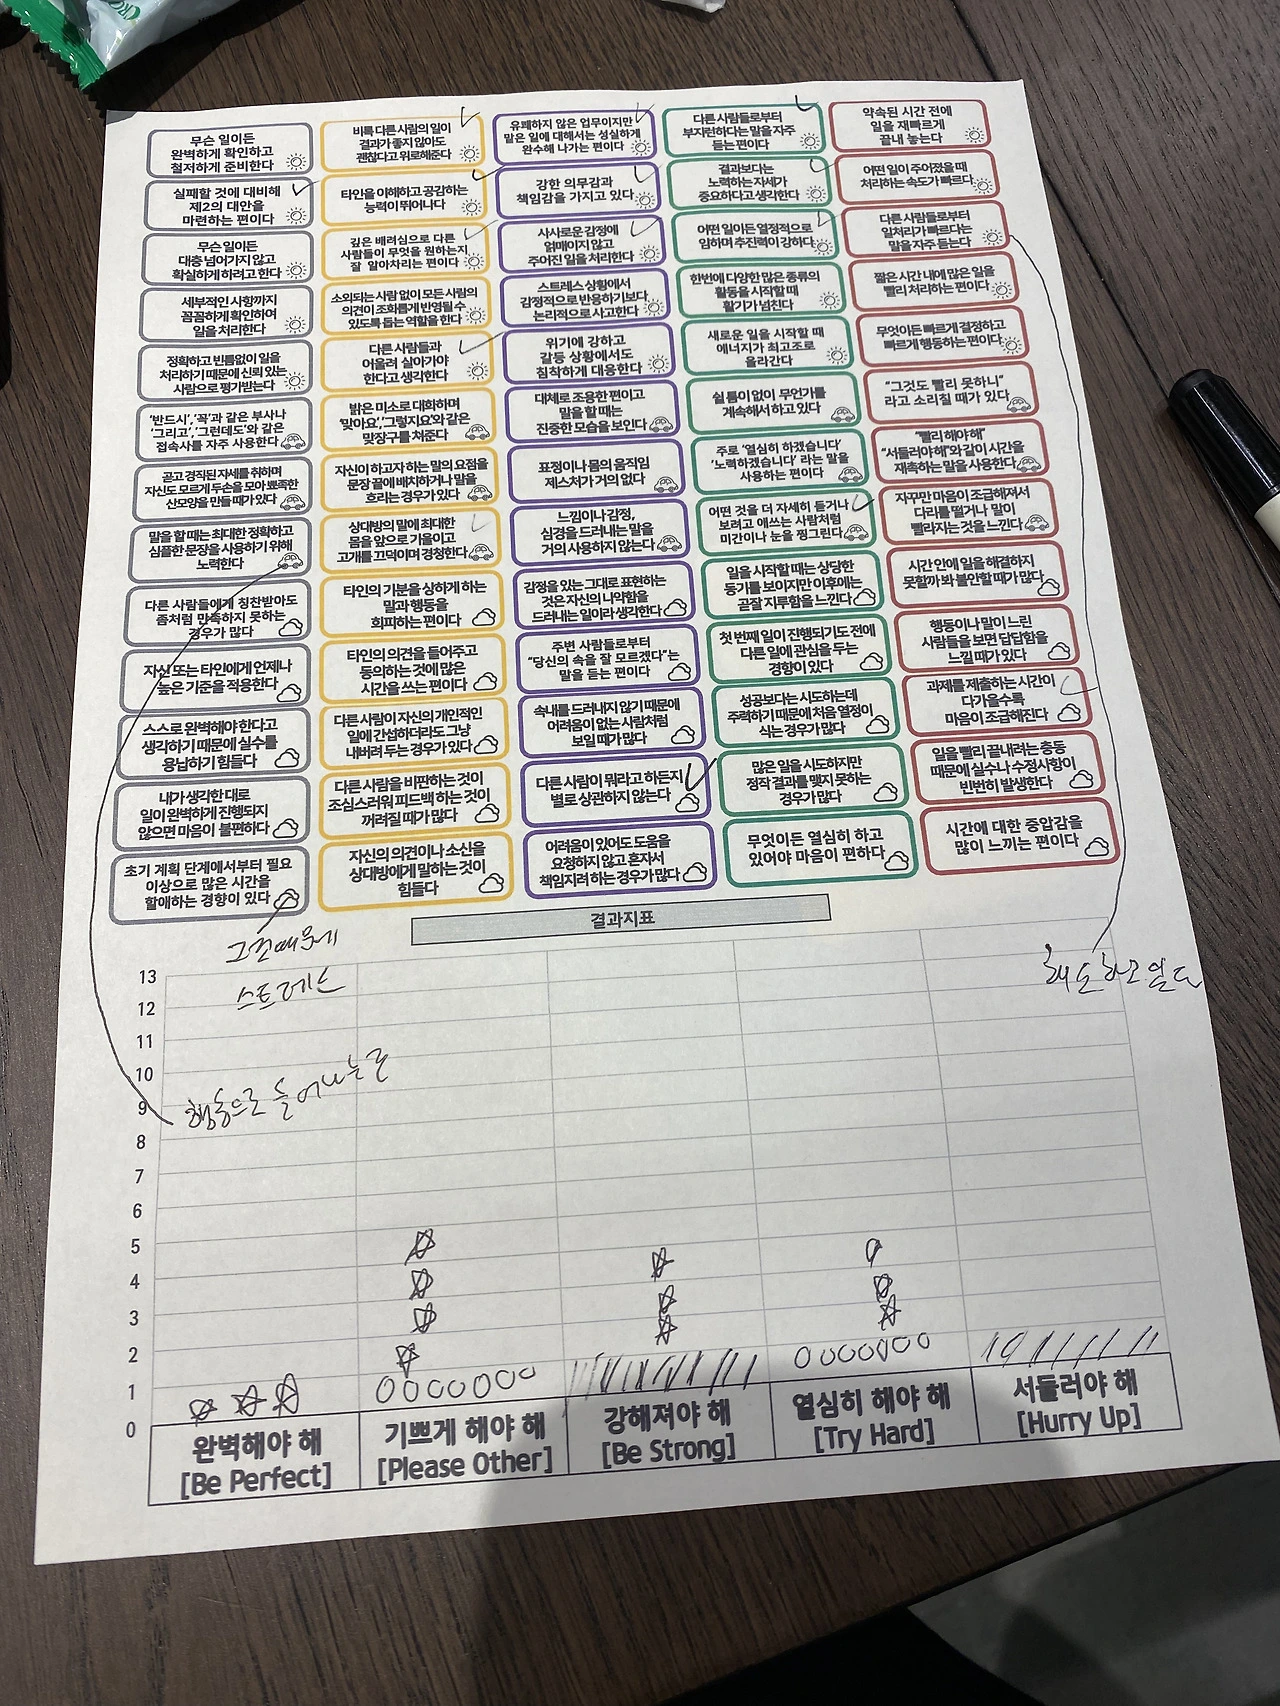 무슨 일이든
완벽하게 확인하고
철저하게 준비한다
실패할 것에 대비해
제2의 대안을
마련하는 편이다
무슨 일이든
대충 넘어가지 않고
확실하게 하려고 한다
세부적인 사항까지
꼼꼼하게 확인하여
일을 처리한다
정확하고 빈틈없이 일을
처리하기 때문에 신뢰 있는
사람으로 평가받는다
'반드시', '꼭'과 같은 부사나
'그리고', '그런데도'와 같은
접속사를 주로 사용한다
곧고 경직된 자세를 취하며
자신도 모르게 두손을 모아 뾰족한
산모양을 만들 때가 있다
말을 할 때는 최대한 정확하고
심플한 문장을 사용하기 위해
노력한다
다른 사람들에게 칭찬받아도
좀처럼 만족하지 못하는
경우가 많다
자신 또는 타인에게 언제나
높은 기준을 적용한다
스스로 완벽해야 한다고
생각하기 때문에 실수를
용납하기 힘들다
내가 생각한 대로
일이 완벽하게 진행되지
않으면 마음이 불편하다
초기 계획 단계에서부터 필요
이상으로 많은 시간을
할애하는 경향이 있다
비록 다른 사람의 일이
결과가 좋지 않아도
괜찮다고 위로해준다
타인을 이해하고 공감하는
능력이 뛰어나다
깊은 배려심으로 다른
사람들이 무엇을 원하는지
잘 알아차리는 편이다
소외되는 사람 없이 모든 사람의
의견이 조화롭게 반영될 수
있도록 돕는 역할을 한다
다른 사람들과
어울려 살아가야
한다고 생각한다
밝은 미소로 대화하며
'맞아요', '그렇지요'와 같은
맞장구를 쳐준다
자신이 하고자 하는 말의 요점을
문장 끝에 배치하거나 말을
흐리는 경우가 있다
상대방의 말에 최대한
몸을 앞으로 기울이고
고개를 끄덕이며 경청한다
타인의 기분을 상하게 하는
말과 행동을
회피하는 편이다
타인의 의견을 들어주고
동의하는 것에 많은
시간을 쓰는 편이다
다른 사람이 자신의 개인적인
일에 간섭하더라도 그냥
내버려 두는 경우가 있다
다른 사람을 비판하는 것이
조심스러워 피드백 하는 것이
꺼려질 때가 많다
자신의 의견이나 소신을
상대방에게 말하는 것이
힘들다
유쾌하지 않은 업무이지만
맡은 일에 대해서는 성실하게
완수해 나가는 편이다
강한 의무감과
책임감을 가지고 있다
사사로운 감정에
얽매이지 않고
주어진 일을 처리한다
스트레스 상황에서
감정적으로 반응하기보다
논리적으로 사고한다
위기에 강하고
갈등 상황에서도
침착하게 대응한다
대체로 조용한 편이고
말을 할 때는
진중한 모습을 보인다
표정이나 몸의 움직임
제스처가 거의 없다
느낌이나 감정,
심경을 드러내는 말을
거의 사용하지 않는다
감정을 있는 그대로 표현하는
것은 자신의 나약함을
드러내는 일이라 생각한다
주변 사람들로부터
"당신의 속을 잘 모르겠다"는
말을 듣는 편이다
속내를 드러내지 않기 때문에
어려움이 없는 사람처럼
보일 때가 많다
다른 사람이 뭐라고 하든지
별로 상관하지 않는다
어려움이 있어도 도움을
요청하지 않고 혼자서
책임지려 하는 경우가 많다
다른 사람들로부터
부지런하다는 말을 자주
듣는 편이다
결과보다는
노력하는 자세가
중요하다고 생각한다
어떤 일이든 열정적으로
임하며 추진력이 강하다
한번에 다양한 많은 종류의
활동을 시작할 때
활기가 넘친다
새로운 일을 시작할 때
에너지가 최고조로
올라간다
쉴 틈이 없이 무언가를
계속해서 하고 있다
주로 '열심히 하겠습니다'
'노력하겠습니다' 라는 말을
사용하는 편이다
어떤 것을 더 자세히 듣거나
보려고 애쓰는 사람처럼
미간이나 눈을 찡그린다
일을 시작할 때는 상당한
동기를 보이지만 이후에는
곧잘 지루함을 느낀다
첫 번째 일이 진행되기도 전에
다른 일에 관심을 두는
경향이 있다
성공보다는 시도하는데
주력하기 때문에 처음 열정이
식는 경우가 많다
많은 일을 시도하지만
정작 결과를 맺지 못하는
경우가 많다
무엇이든 열심히 하고
있어야 마음이 편하다
약속된 시간 전에
일을 재빠르게
끝내 놓는다
어떤 일이 주어졌을 때
처리하는 속도가 빠르다
다른 사람들로부터
일처리가 빠르다는
말을 자주 듣는다
짧은 시간 내에 많은 일을
빨리 처리하는 편이다
무엇이든 빠르게 결정하고
빠르게 행동하는 편이다
"그것도 빨리 못하니"
라고 소리칠 때가 있다
"빨리 해야 해"
"서둘러야 해"와 같이 시간을
재촉하는 말을 사용한다
자꾸만 마음이 조급해져서
다리를 떨거나 말이
빨라지는 것을 느낀다
시간 안에 일을 해결하지
못할까 봐 불안할 때가 많다
행동이나 말이 느린
사람들을 보면 답답함을
느낄 때가 있다
과제를 제출하는 시간이
다가올수록
마음이 조급해진다
일을 빨리 끝내려는 충동
때문에 실수나 수정사항이
빈번히 발생한다
시간에 대한 중압감을
많이 느끼는 편이다
결과지표
그것때문에
스트레스
행동으로 들어나는곳
13
12
11
10
9
8
7
6
5
4
3
2
1
0
완벽해야 해
[Be Perfect]
기쁘게 해야 해
[Please Other]
강해져야 해
[Be Strong]
열심히 해야 해
[Try Hard]
서둘러야 해
[Hurry Up]